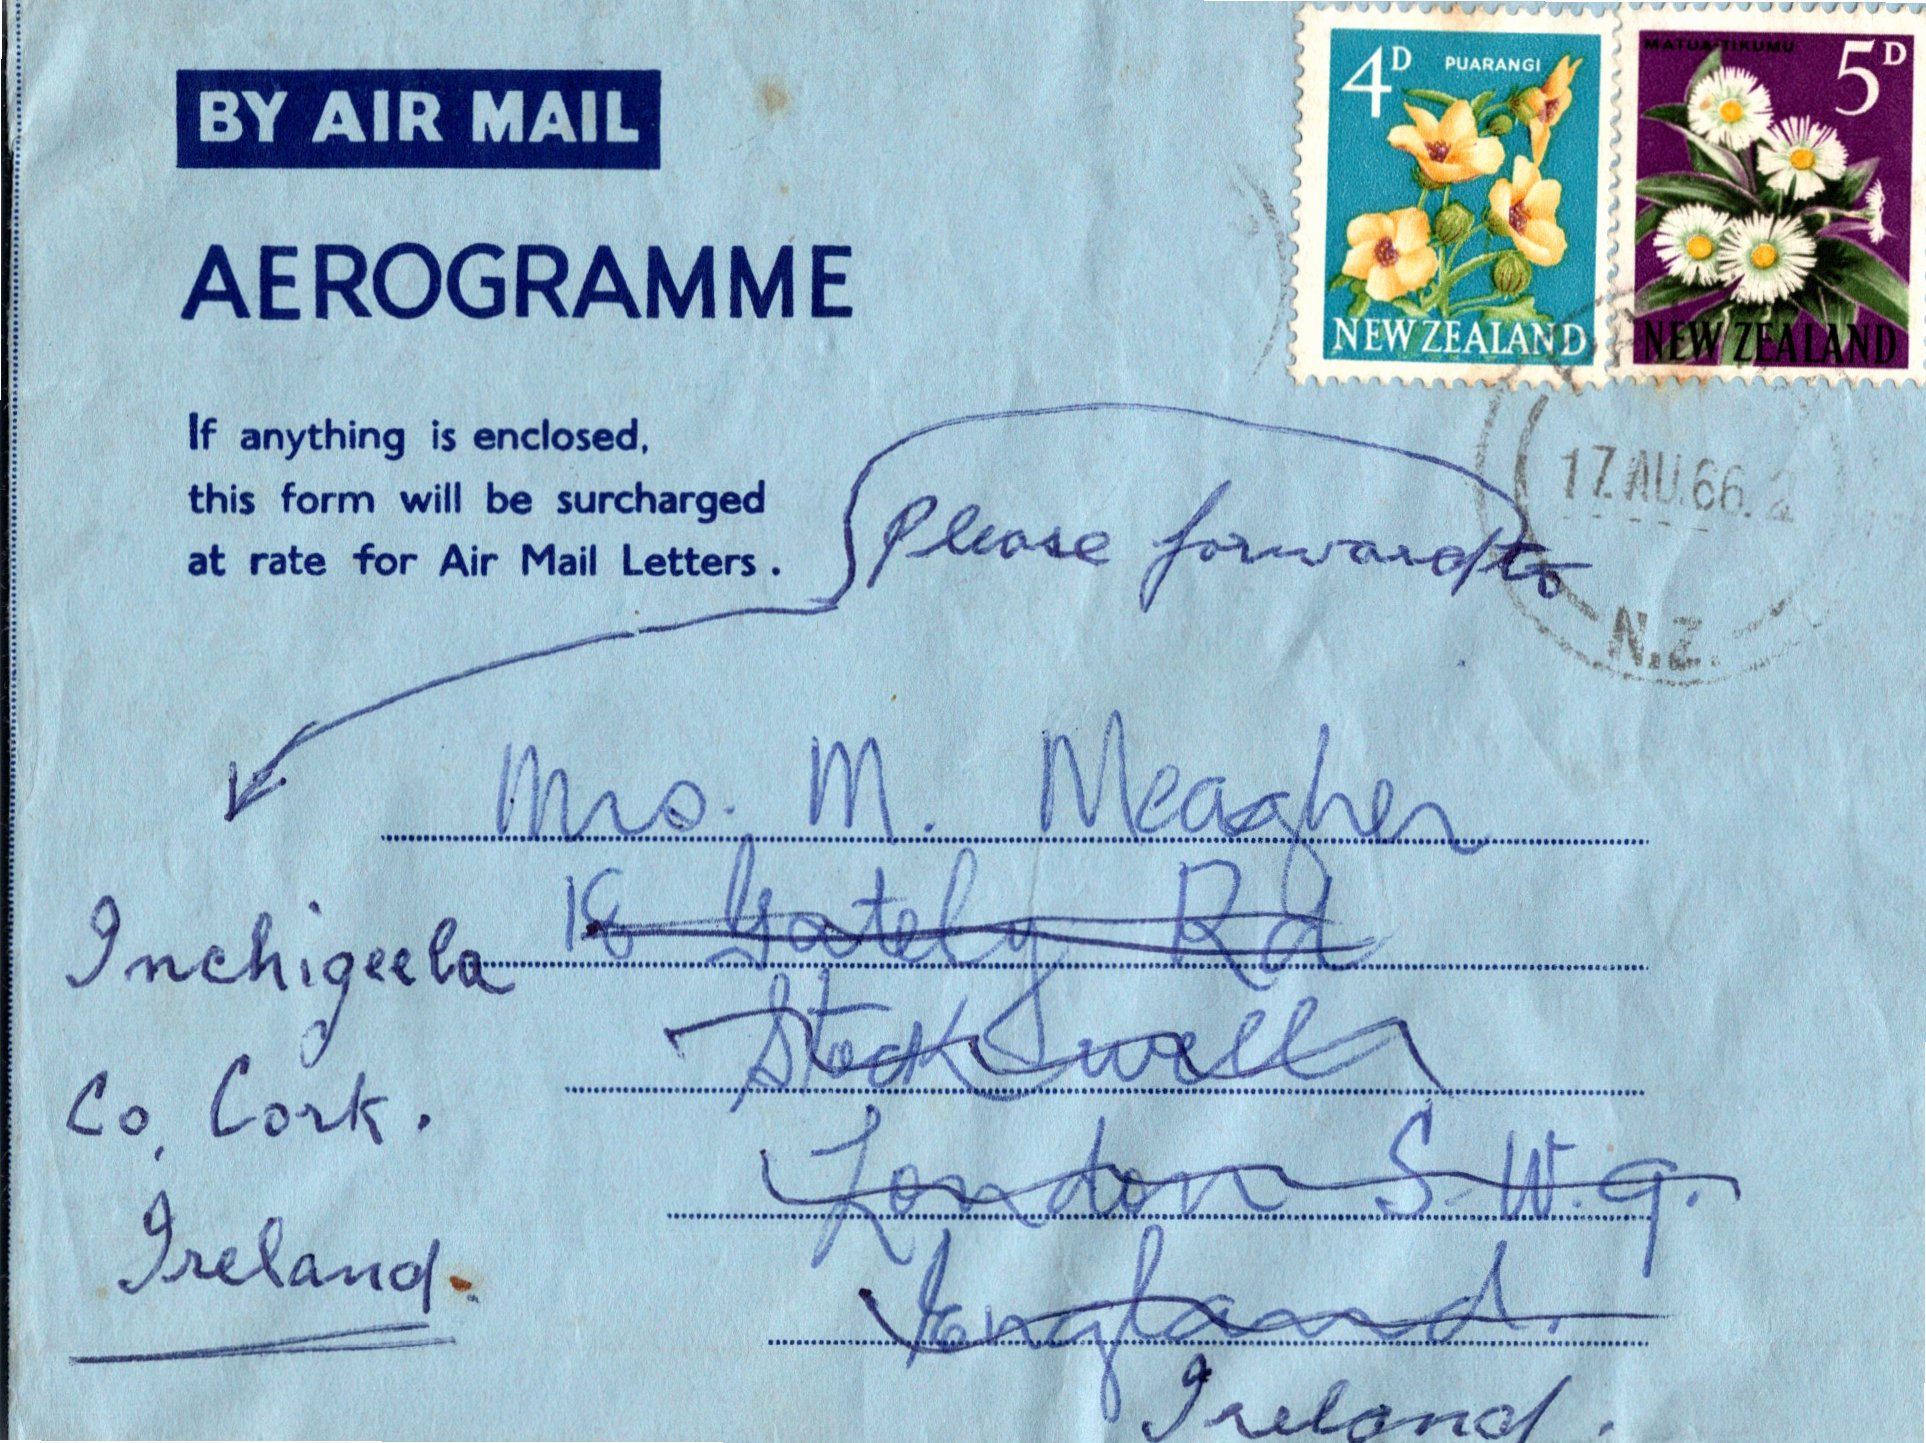 BY AIR MAIL
AEROGRAMME
If anything is enclosed,
this form will be surcharged
at rate for Air Mail Letters.
4D PUARANGI
NEW ZEALAND
MATUA-TIKUMU 5D
NEW ZEALAND
17.AU.66.2
N.Z.
Please forward to
Mrs. M. Meagher
18 Gately Rd
Stockwell
London S.W.9.
England.
Ireland.
Inchigeela
Co. Cork.
Ireland.